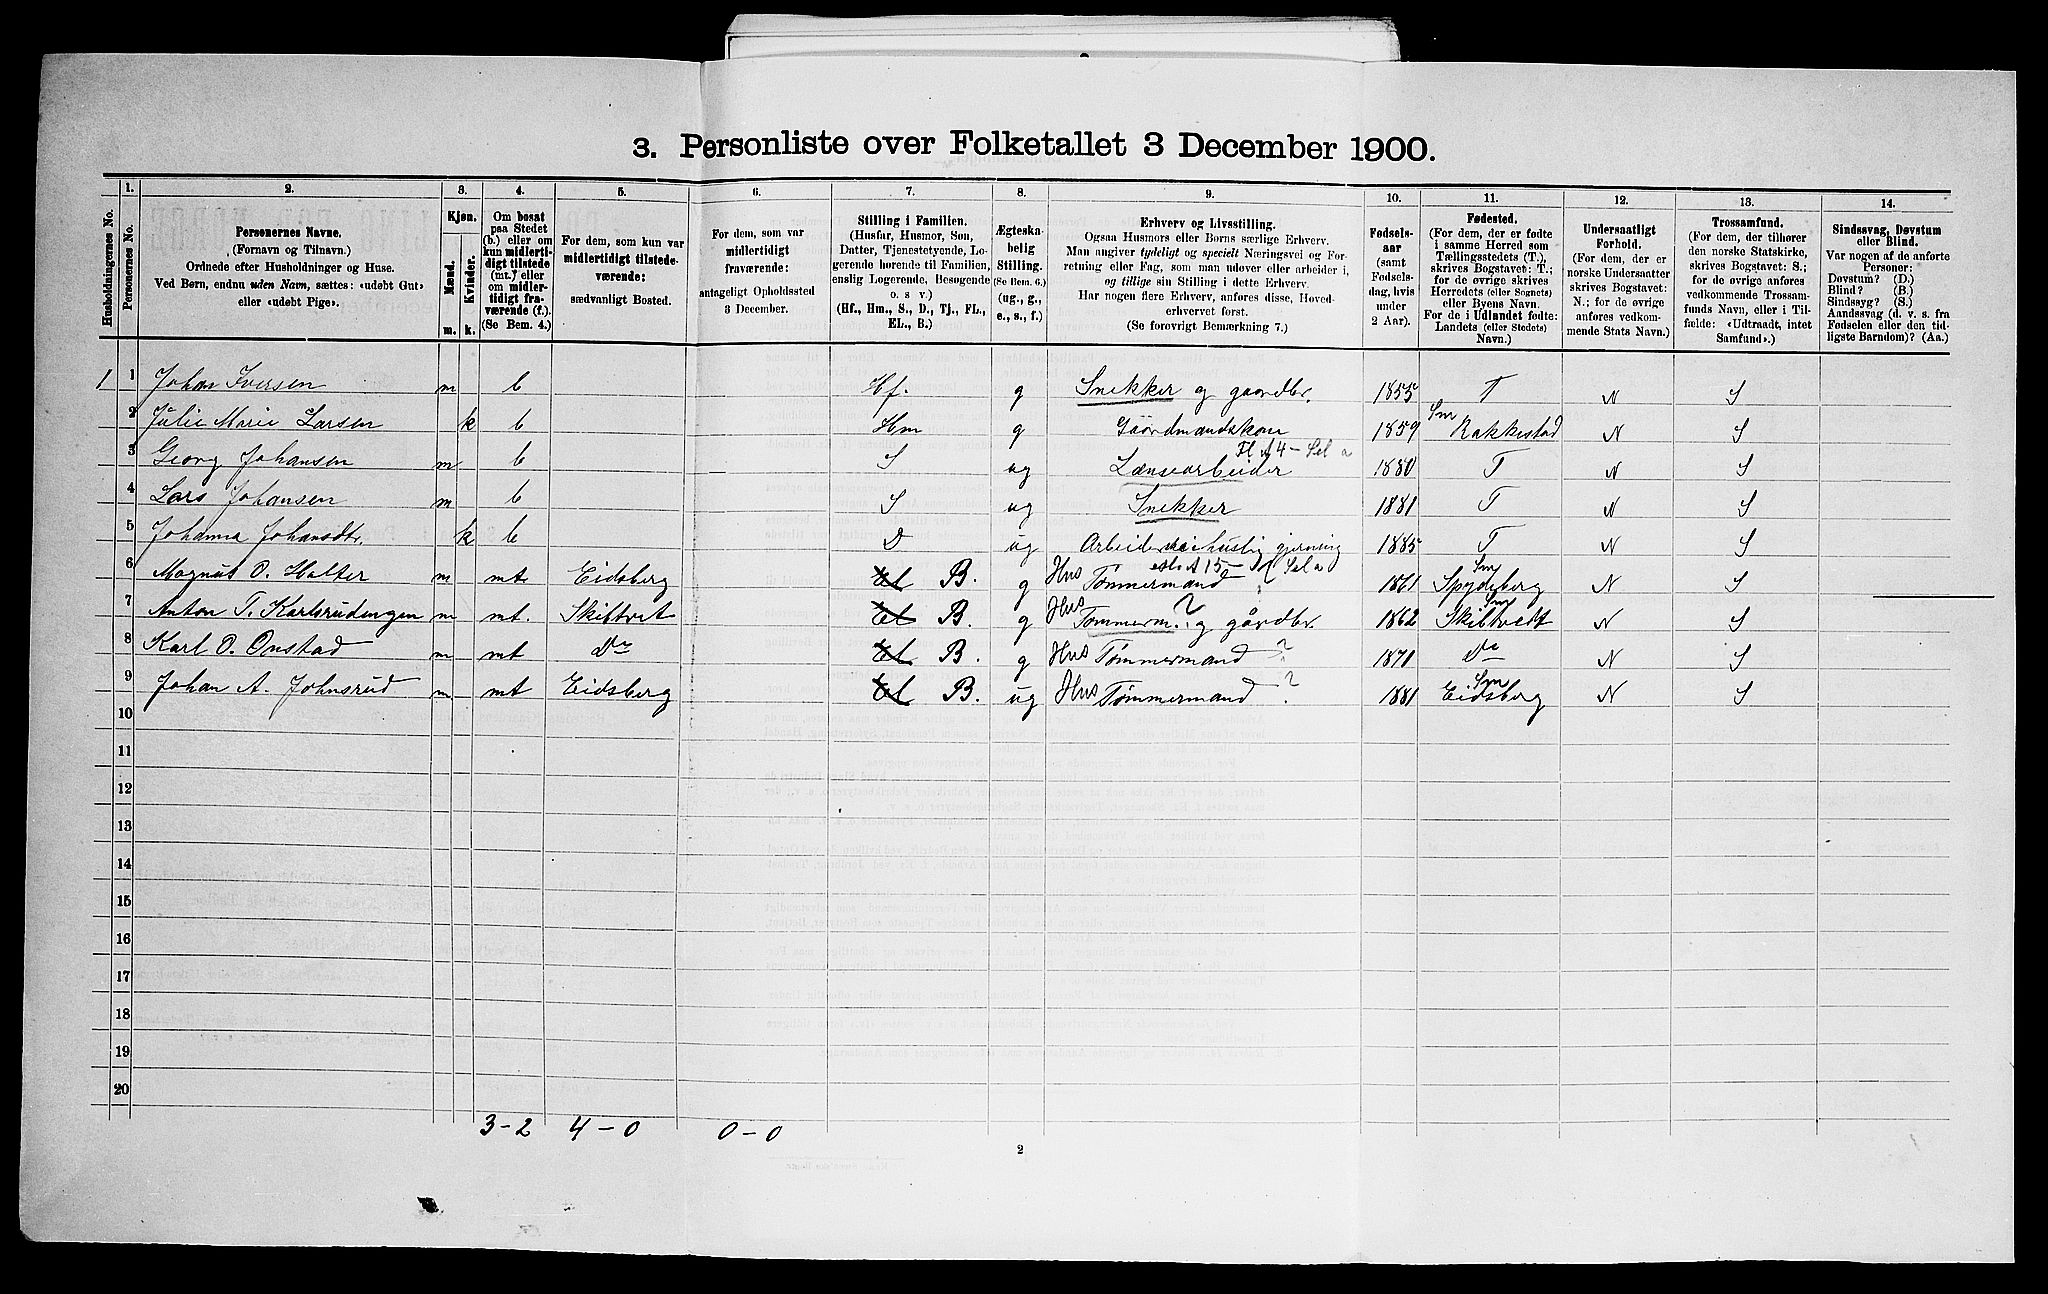 3. Personliste over Folketallet 3 December 1900.
Husholdningernes No.
1.
Personernes No.
2.
Personernes Navne.
(Fornavn og Tilnavn.)
Ordnede efter Husholdninger og Huse.
Ved Børn, endnu uden Navn, sættes: «udøbt Gut»
eller «udøbt Pige».
3.
Kjøn.
Mænd.
Kvinder.
m.
k.
4.
Om bosat
paa Stedet
(b.) eller om
kun midlerti-
digt tilstede
(mt.) eller
om midler-
tidigt fra-
værende (f.)
(Se Bem. 4.)
5.
For dem, som kun var
midlertidigt tilstede-
værende:
sædvanligt Bosted.
6.
For dem, som var
midlertidigt
fraværende:
antageligt Opholdssted
3 December.
7.
Stilling i Familien.
(Husfar, Husmor, Søn,
Datter, Tjenestetyende, Lo-
gerende hørende til Familien,
enslig Logerende, Besøgende
o. s. v.)
(Hf., Hm., S., D., Tj., FL.,
EL., B.)
8.
Ægteska-
belig
Stilling.
(Se Bem. 6.)
(ug., g.,
e., s., f.)
9.
Erhverv og Livsstilling.
Ogsaa Husmors eller Børns særlige Erhverv.
Man angiver tydeligt og specielt Næringsvei og For-
retning eller Fag, som man udøver eller arbeider i,
og tillige sin Stilling i dette Erhverv.
Har nogen flere Erhverv, anføres disse, Hoved-
erhvervet først.
(Se forøvrigt Bemærkning 7.)
10.
Fødsels-
aar
(samt
Fødsels-
dag, hvis
under
2 Aar).
11.
Fødested.
(For dem, der er fødte
i samme Herred som
Tællingsstedets (T.),
skrives Bogstavet: T.;
for de øvrige skrives
Herredets (eller Sognets)
eller Byens Navn.
For de i Udlandet fødte:
Landets (eller Stedets)
Navn.)
12.
Undersaatligt
Forhold.
(For dem, der er
norske Undersaatter
skrives Bogstavet:
N.; for de øvrige
anføres vedkom-
mende Stats Navn.)
13.
Trossamfund.
(For dem, der tilhører
den norske Statskirke,
skrives Bogstavet: S.;
for de øvrige anføres
vedkommende Trossam-
funds Navn, eller i Til-
fælde: «Udtraadt, intet
Samfund».)
14.
Sindssvag, Døvstum
eller Blind.
Var nogen af de anførte
Personer:
Døvstum? (D.)
Blind? (B.)
Sindssyg? (S.)
Aandssvag (d. v. s. fra
Fødselen eller den tid-
ligste Barndom)? (Aa.)
1 1 Johan Iversen m b Hf. g Snekker og gaardbr. 1855 T N S
2 Julie Marie Larsen k b Hm g Gaardmandskone 1859 Sm Rakkestad N S
3 Georg Johansen m b S ug Lænsearbeider 1880 T N S
4 Lars Johansen m b S ug Snekker 1881 T N S
5 Johanna Johansdtr. k b D ug Arbeider i huslig gjerning 1885 T N S
6 Magnus O. Holter m mt. Eidsberg El B. g Hus Tømmermand 1861 Sm Spydeberg N S
7 Anton T. Karlsrudengen m mt. Skibtvet El B. g Hus Tømmerm. ? og gårdbr. 1862 Sm Skibtvedt N S
8 Karl O. Onstad m mt Do El B. g Hus Tømmermand ? 1871 Do N S
9 Johan A. Johnsrud m mt Eidsberg El B. ug Hus Tømmermand ? 1881 Sm Eidsberg N S
10
11
12
13
14
15
16
17
18
19
20
3-2 4-0 0-0
2